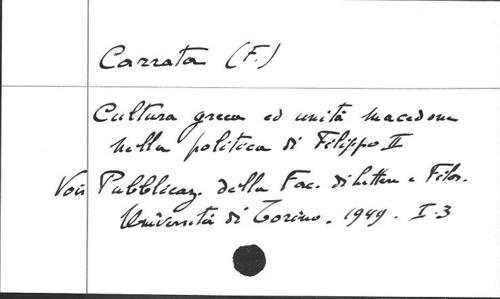 Carrata (F.)
Cultura greca ed unità macedone
nella politica di Filippo II
Voir Pubblicaz. della Fac. di lettere e Filos.
Università di Torino. 1949. I-3